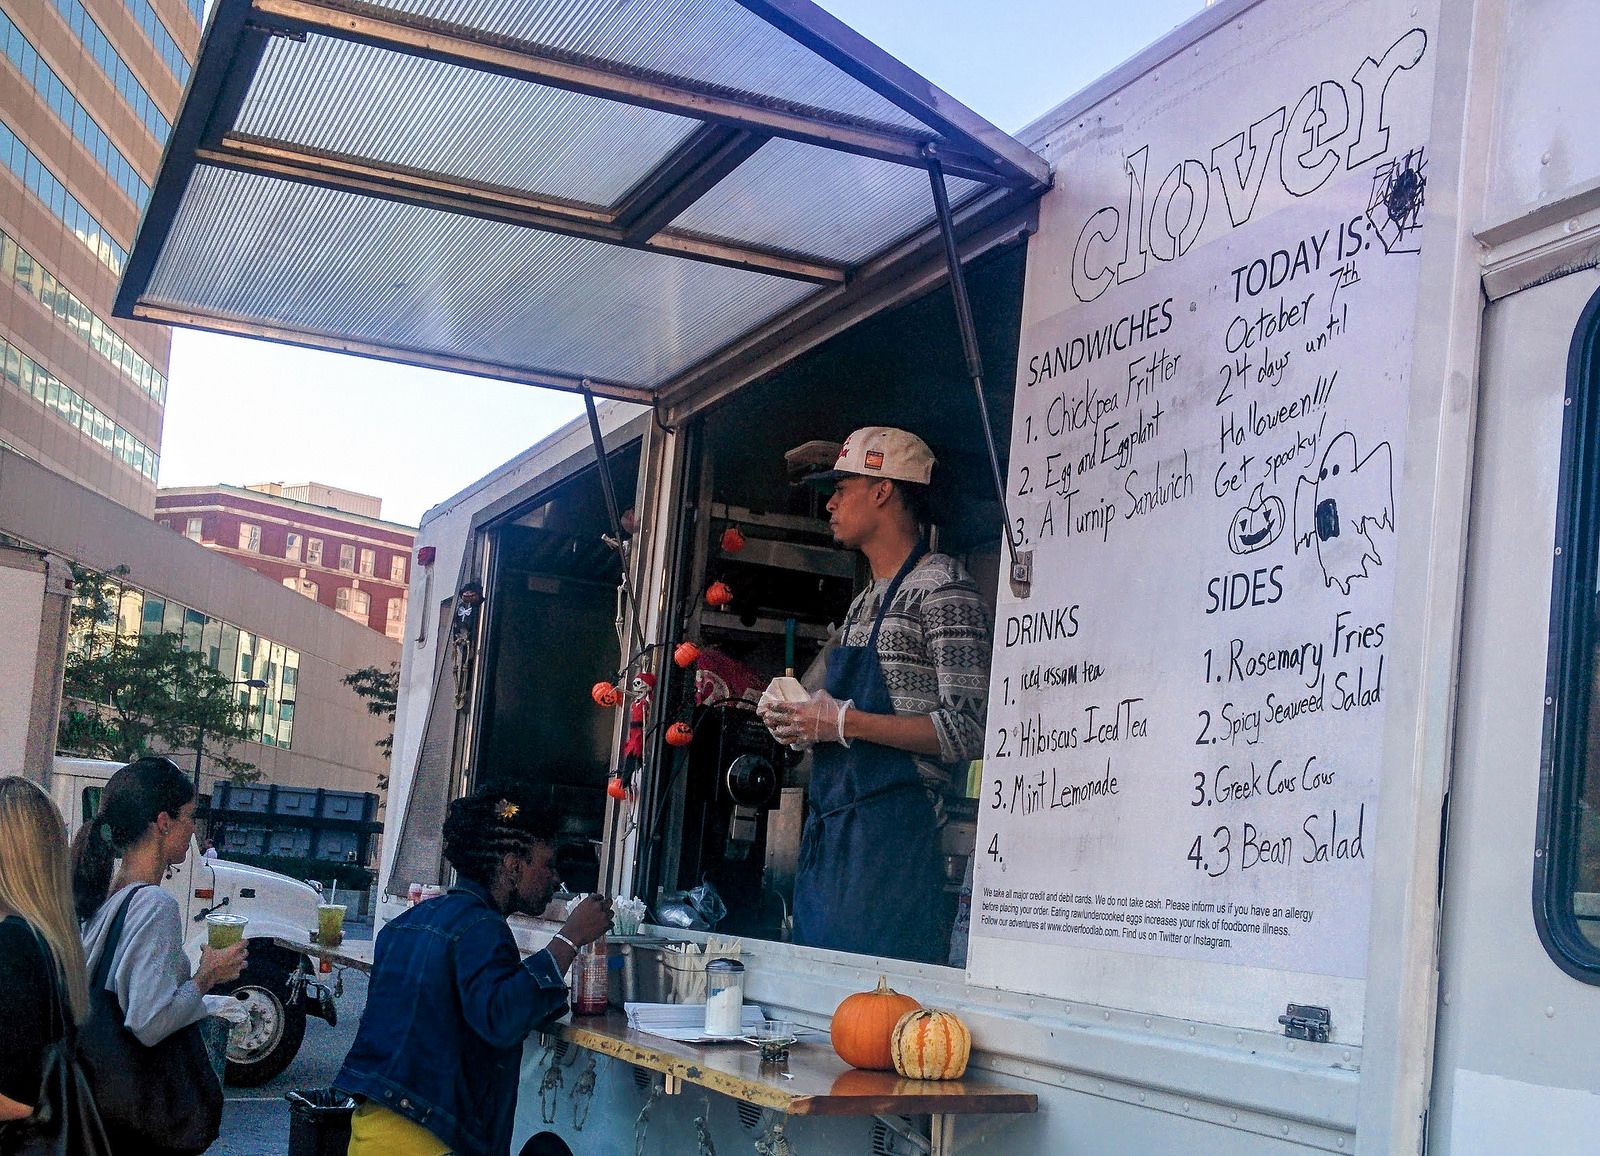 clover
SANDWICHES
1. Chickpea Fritter
2. Egg and Eggplant
3. A Turnip Sandwich
TODAY IS:
October 7th
24 days until
Halloween!!!
Get spooky!
DRINKS
1. iced assam tea
2. Hibiscus Iced Tea
3. Mint Lemonade
4.
SIDES
1. Rosemary Fries
2. Spicy Seaweed Salad
3. Greek Cous Cous
4. 3 Bean Salad
We take all major credit and debit cards. We do not take cash. Please inform us if you have an allergy
before placing your order. Eating raw/undercooked eggs increases your risk of foodborne illness.
Follow our adventures at www.cloverfoodlab.com. Find us on Twitter or Instagram.